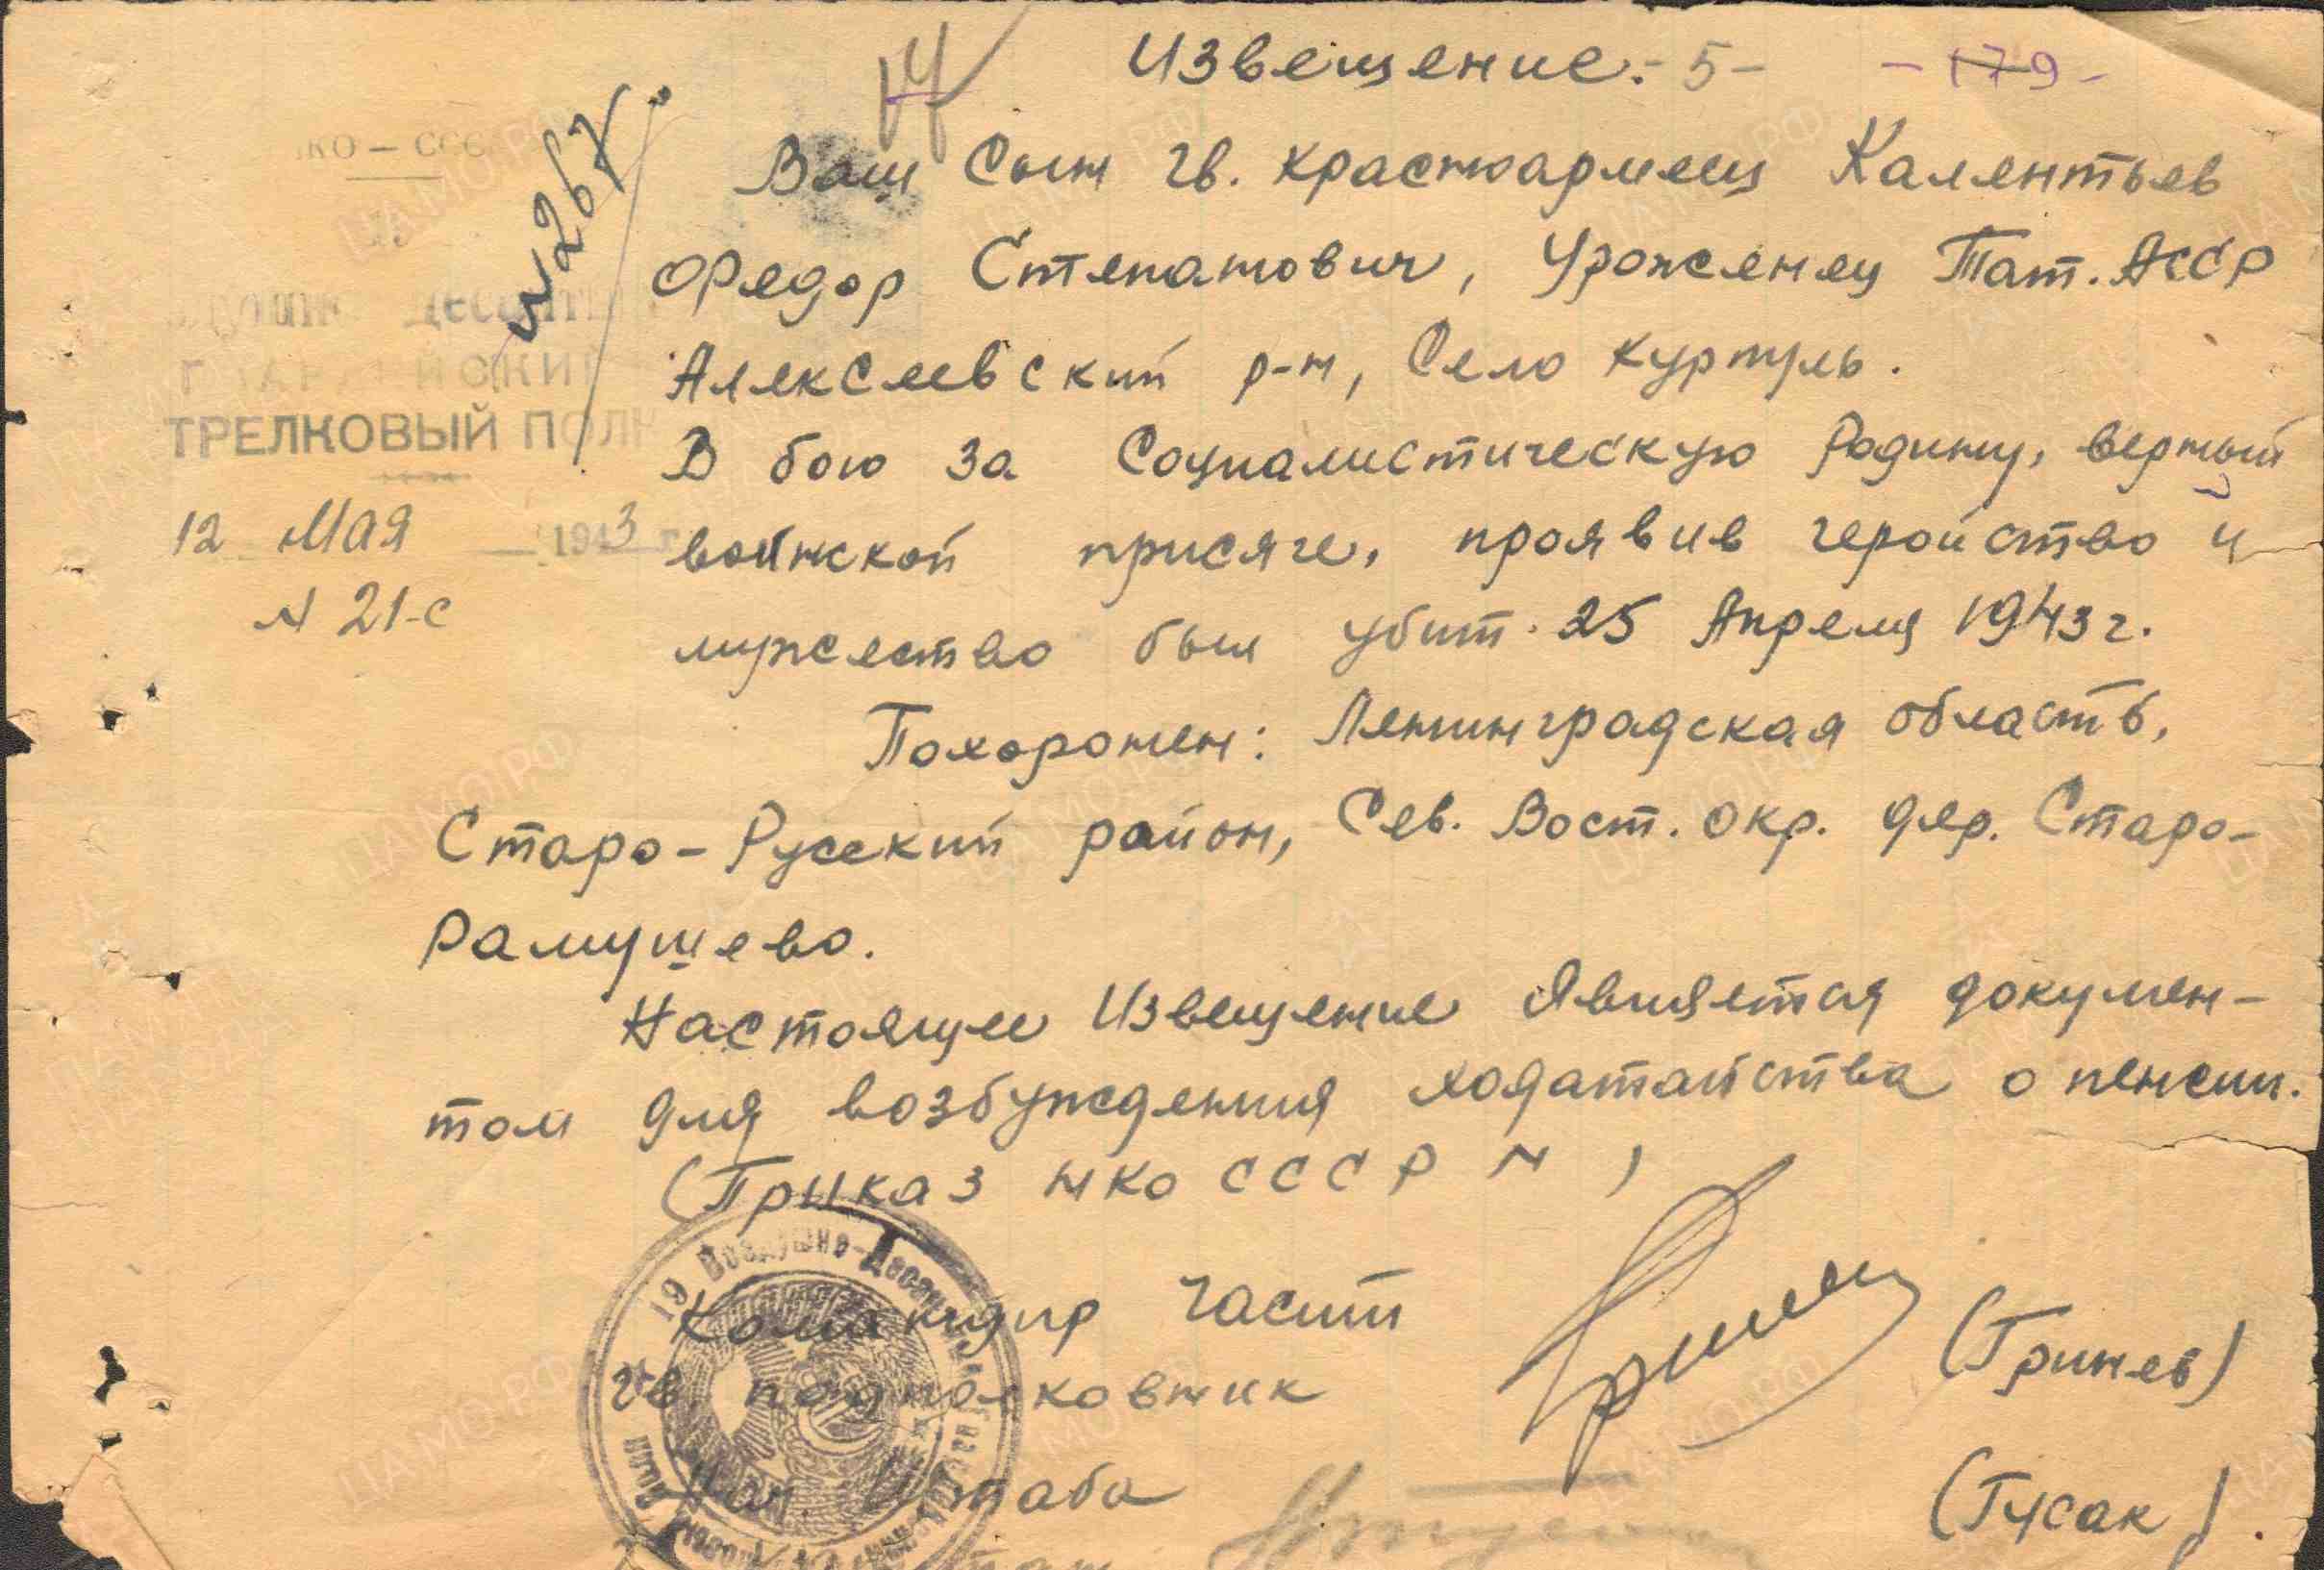 Извещение. - 5 -
- 179 -
14
№267
НКО - СССР
ТРЕЛКОВЫЙ ПОЛК
12 Мая 1943 г.
N 21-с
Ваш Сын гв. красноармеец Калентьев
Федор Степанович, Уроженец Тат. АССР
Алексеевский р-н, Село Куркуль.
В бою за Социалистическую Родину, верный
воинской присяге, проявив геройство и
мужество был убит. 25 Апреля 1943 г.
Похоронен: Ленинградская область,
Старо-Русский район, Сев. Вост. окр. дер. Старо-
Рамушево.
Настоящее Извещение Является докумен-
том для возбуждения ходатайства о пенсии.
(Приказ НКО СССР N )
19 Воздушно-Десантный
Командир части
гв. подполковник
(Гринев)
Нач Штаба
(Гусак).